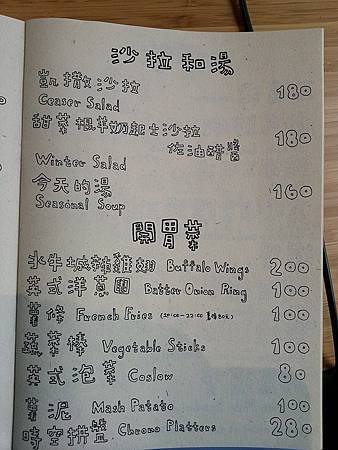 沙拉和湯
凱撒沙拉 180
Ceaser Salad
甜菜根羊奶起士沙拉 180
佐油醋醬
Winter Salad
今天的湯 160
Seasonal Soup
開胃菜
水牛城辣雞翅 Buffalo Wings 200
美式洋蔥圈 Batter Onion Ring 100
薯條 French Fries 100
蔬菜棒 Vegetable Sticks 100
美式泡菜 Coslow 80
薯泥 Mash Patato 100
時空拼盤 Chrono Platters 280